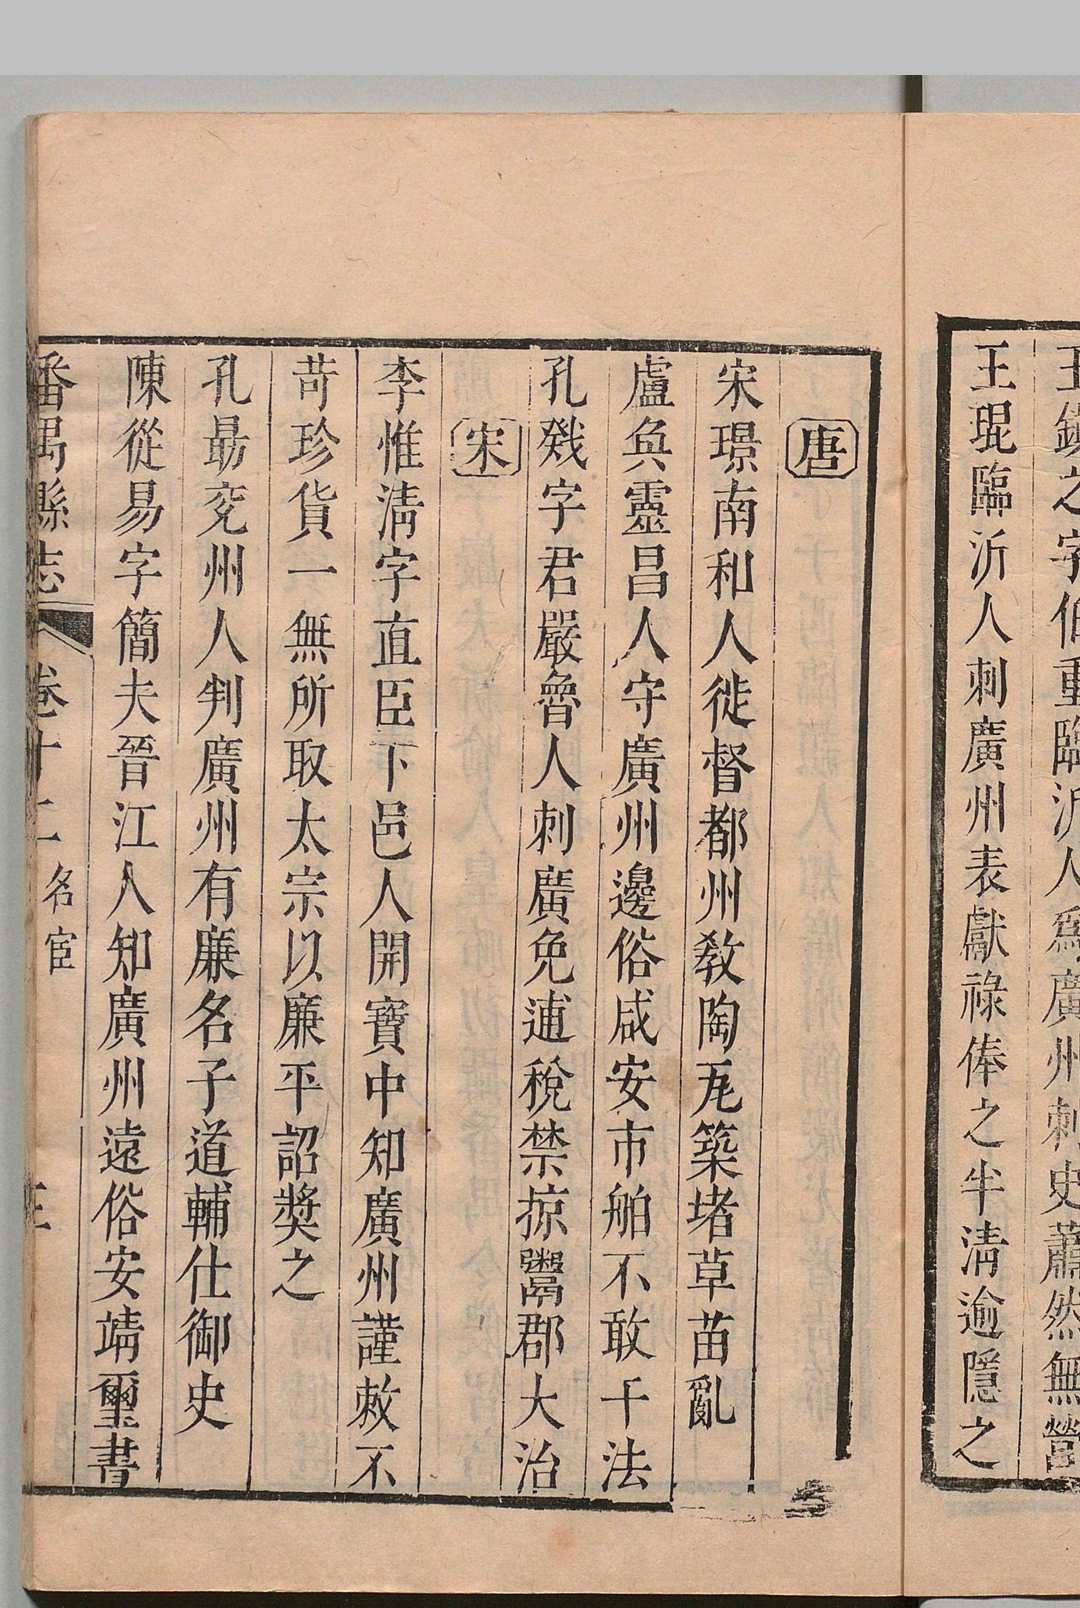 王鎮之字伯重臨沂人爲廣州刺史蕭然無營
王琨臨沂人刺廣州表獻祿俸之半淸逾隱之
唐
宋璟南和人徙督都州敎陶瓦築堵草苗亂
盧奐靈昌人守廣州邊俗咸安市舶不敢干法
孔戣字君嚴魯人刺廣免逋稅禁掠鬻郡大治
宋
李惟淸字直臣下邑人開寶中知廣州謹敕不
苛珍貨一無所取太宗以廉平詔獎之
孔勗兖州人判廣州有廉名子道輔仕御史
陳從易字簡夫晉江人知廣州遠俗安靖璽書
番禺縣志 卷十二 名宦 三